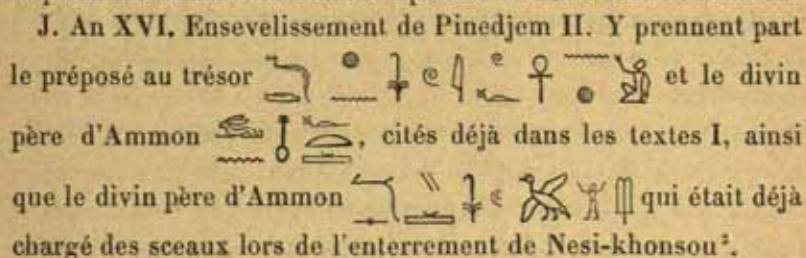 J. An XVI. Ensevelissement de Pinedjem II. Y prennent part
le préposé au trésor et le divin
père d'Ammon , cités déjà dans les textes I, ainsi
que le divin père d'Ammon qui était déjà
chargé des sceaux lors de l'enterrement de Nesi-khonsou².